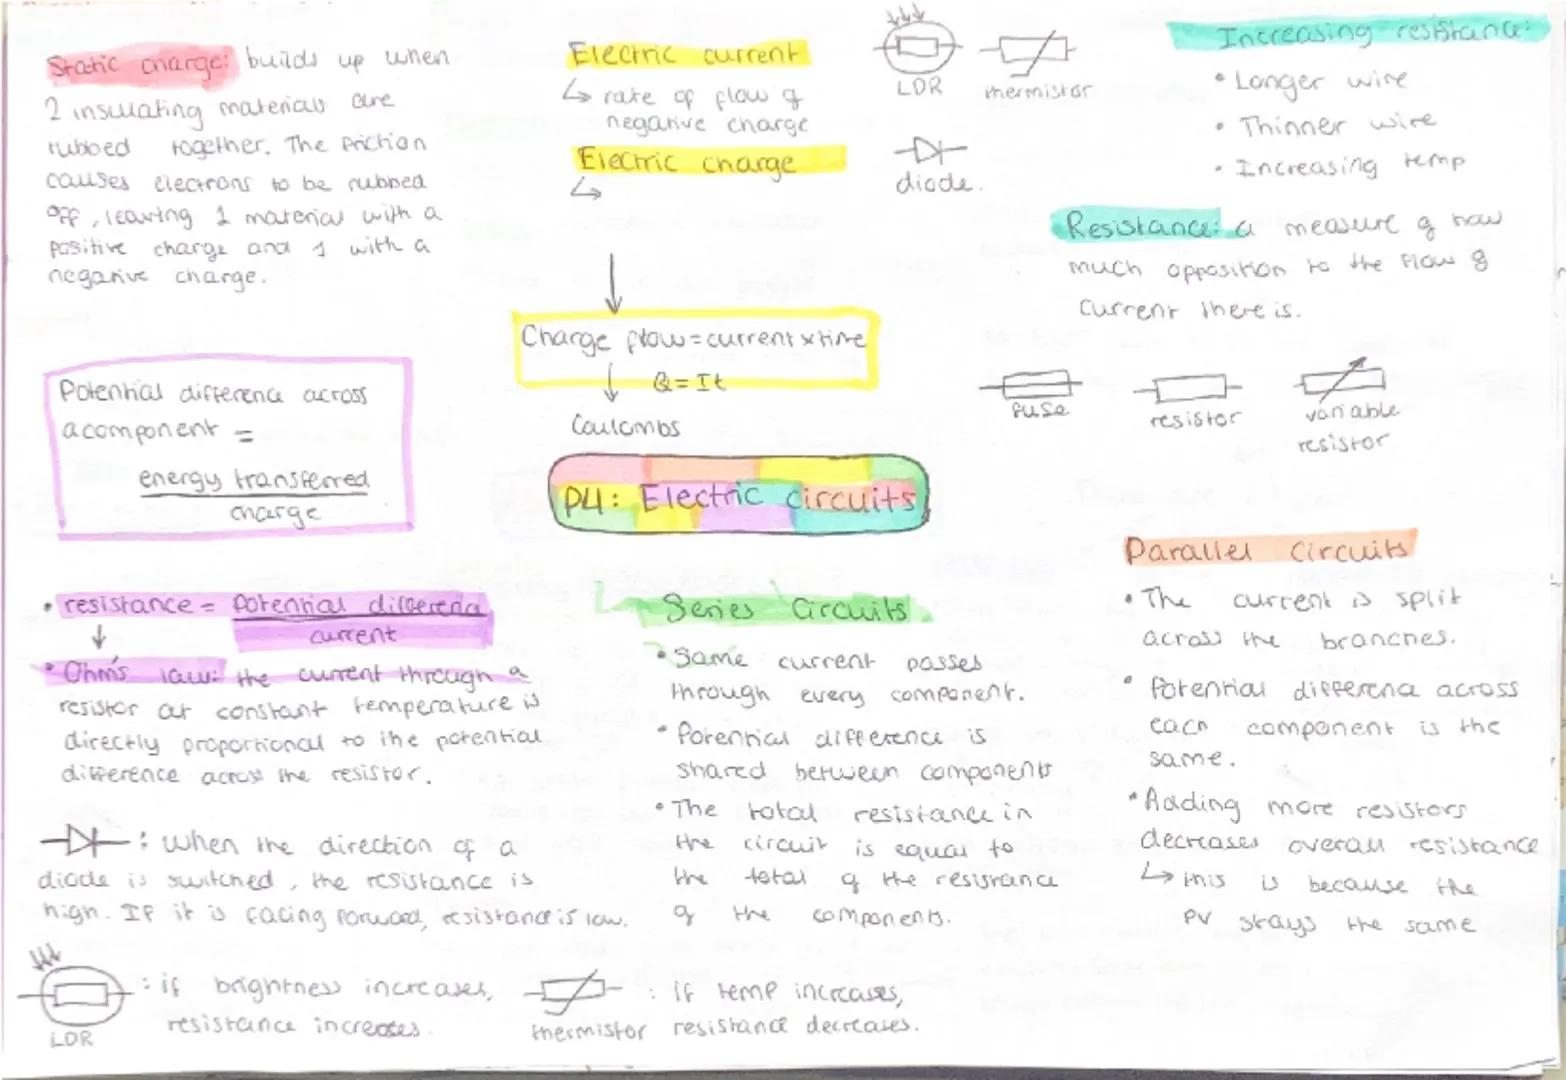 Static charge: builds up when
2 insulating materials are
rubbed together. The friction
causes electrons to be rubbed
off, leaving 1 material with a
positive charge and 1 with a
negative charge.
Potential difference across
a component =
energy transferred
charge
• resistance = Potential difference
current
• Ohm's law: the current through a
resistor at constant temperature is
directly proportional to the potential
difference across the resistor.
: When the direction of a
diode is switched, the resistance is
high. If it is facing forward, resistance is low.
: if brightness increases,
resistance increases.
LDR
Electric current
↳ rate of flow of
negative charge
Electric charge
↳
Charge flow = current x time
Q = It
Coulombs
P4: Electric circuits
Series Circuits
• Same current passes
through every component.
• Potential difference is
shared between components
• The total resistance in
the circuit is equal to
the total of the resistance
of the components.
: if temp increases,
thermistor resistance decreases.
LDR
thermistor
diode.
Increasing resistance:
• Longer wire
• Thinner wire
• Increasing temp
Resistance: a measure of how
much opposition to the flow of
current there is.
fuse
resistor
variable
resistor
Parallel Circuits
• The current is split
across the branches.
• Potential difference across
each component is the
same.
• Adding more resistors
decreases overall resistance
↳ this is because the
PV stays the same